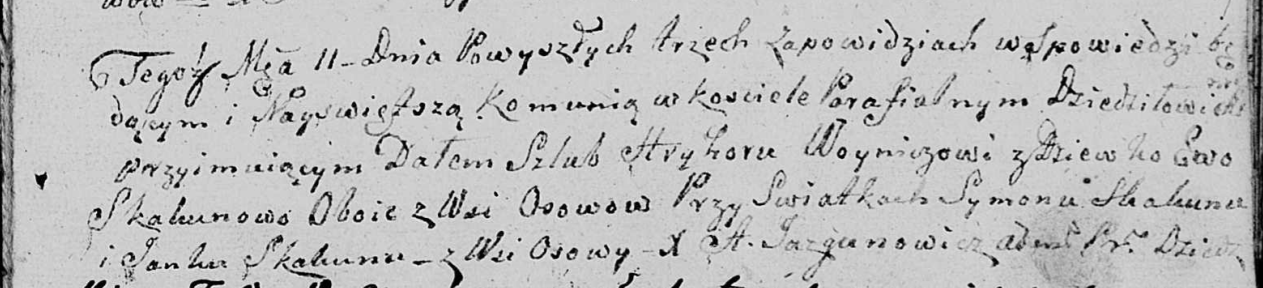 Tegoż Mca 11 - Dnia Powyszłych trzech Zapowidziach w Spowiedzi bę
dącym i Nayświętszą Komunią w kosciele Parafialnym Dziedziłowick
przyimuiącym Dałem Szlub Hryhoru Woyniczowi z Dziewko Ewo
Skakunowo Oboie z Wsi Osowow Przy Swiatkach Symonu Skakunu
i Janku Skakunu - z Wsi Osowy - X A. Jazgunowicz Adm Pr. Dziedz